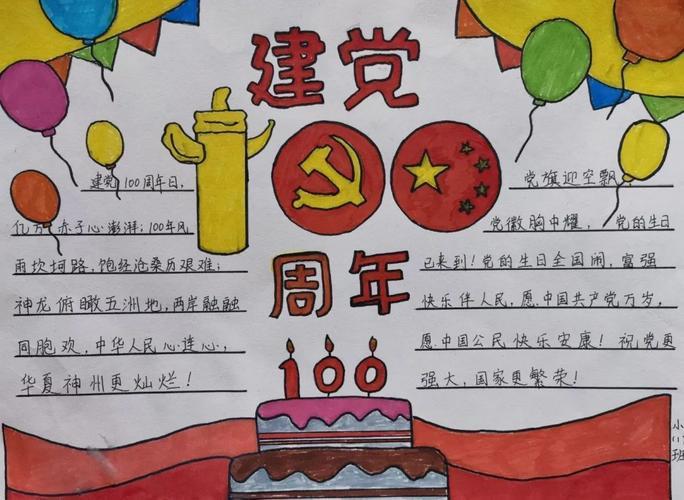 建党
周年
100
建党100周年日，
亿万赤子心澎湃；100年风
雨坎坷路，饱经沧桑历艰难；
神龙俯瞰五洲地，两岸融融
同胞欢，中华人民心连心，
华夏神州更灿烂！
党旗迎空飘，
党徽胸中耀，党的生日
已来到！党的生日全国闹，富强
快乐伴人民，愿中国共产党万岁，
愿中国公民快乐安康！祝党更
强大，国家更繁荣！
小
班